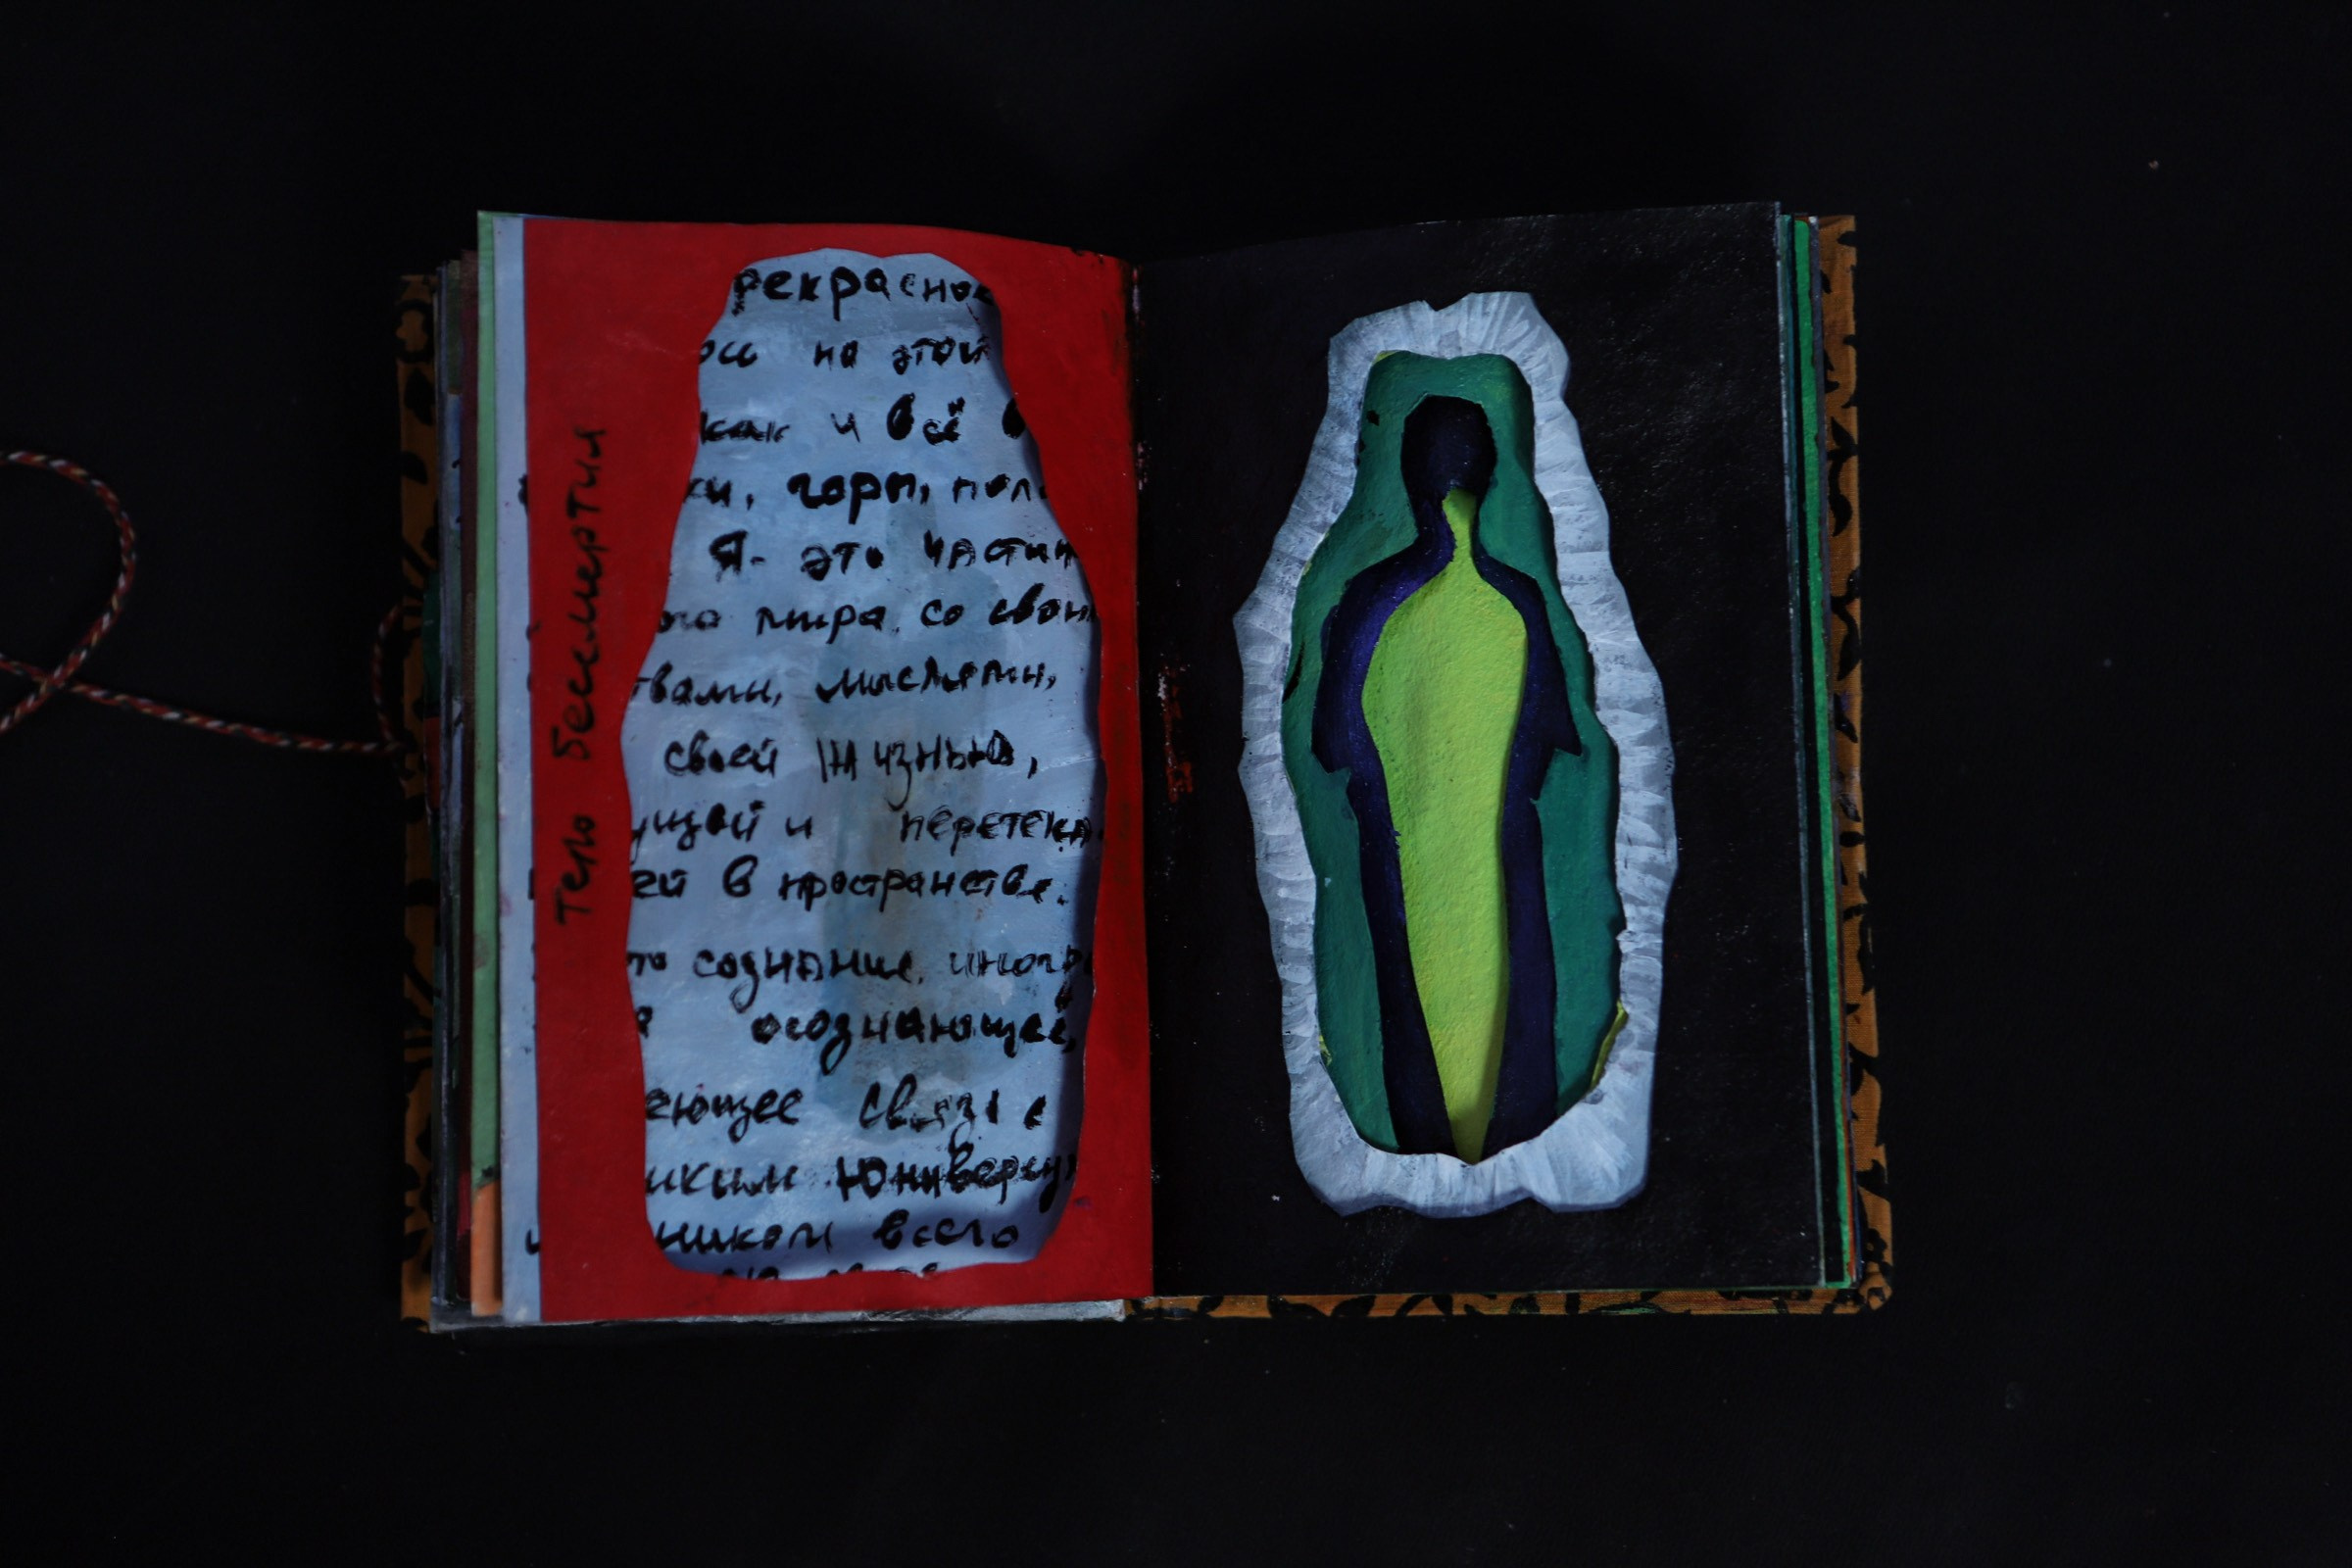 Тело бессмертия
рекрасное
ось на этой
как и всё в
ки, горы, пол
Я - это части
ого мира, со свои
твами, мыслями,
своей жизнью,
ущей и перетека
ей в пространстве.
то сознание, иногд
осознающее,
еющее связь с
иким Юниверсу
ником всего